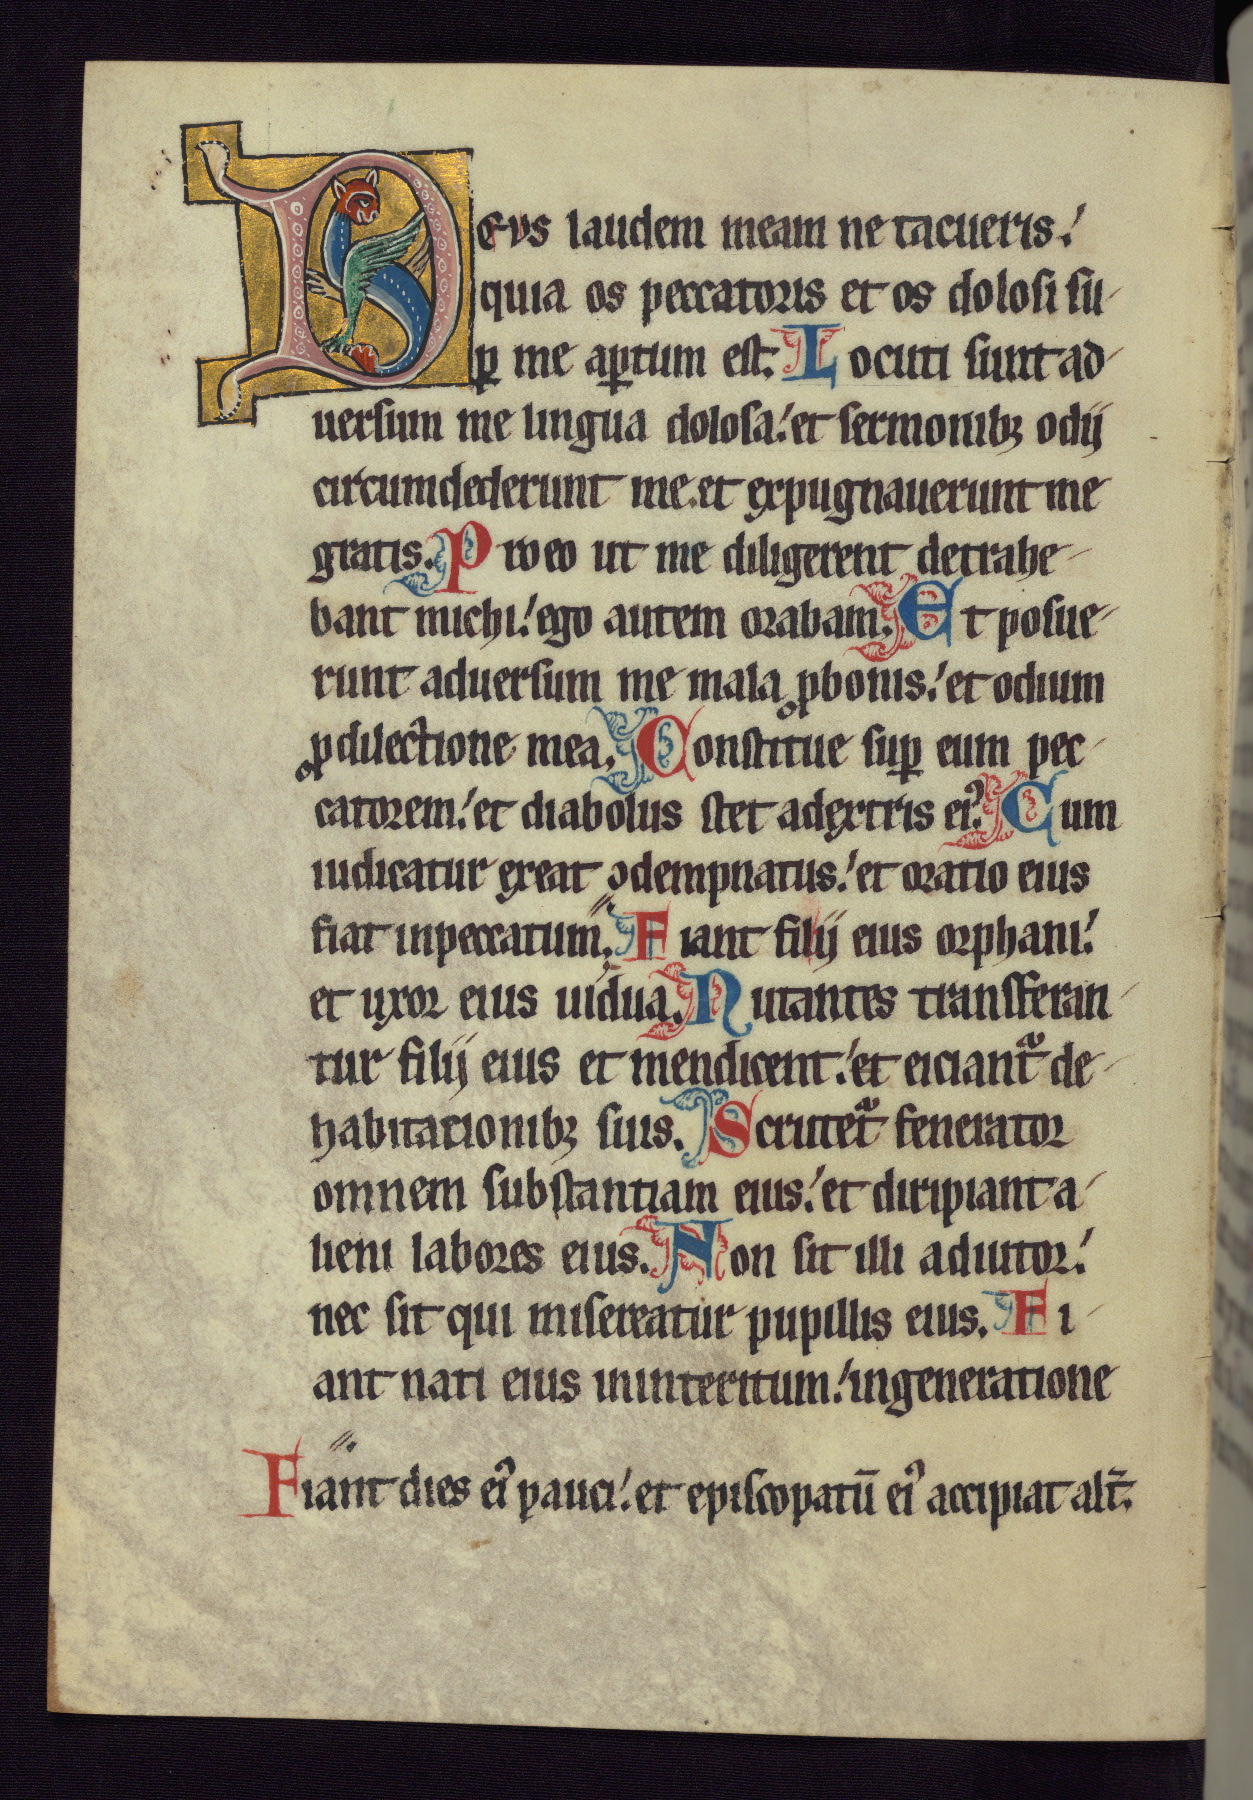 Deus laudem meam ne tacueris.
quia os peccatoris et os dolosi su-
ꝑ me aꝑtum est. Locuti sunt ad-
uersum me lingua dolosa. et sermonibꝫ odij
circumdederunt me. et expugnauerunt me
gratis. Pro eo ut me diligerent detrahe-
bant michi. ego autem orabam. Et posue-
runt aduersum me mala ꝓ bonis. et odium
ꝓ dilectione mea. Constitue suꝑ eum pec-
catorem. et diabolus stet a dextris eiꝰ. Cum
iudicatur exeat ↄdempnatus. et oratio eius
fiat in peccatum. Fiant filij eius orphani.
et uxor eius uidua. Nutantes transferan-
tur filij eius et mendicent. et eiciantᷓ de-
habitationibꝫ suis. Scrutetᷓ fenerator
omnem substantiam eius. et diripiant a-
lieni labores eius. Non sit illi adiutor.
nec sit qui misereatur pupillis eius. Fi-
ant nati eius in interitum. in generatione
Fiant dies eiꝰ pauci. et episcopatū eiꝰ accipiat alt̄.